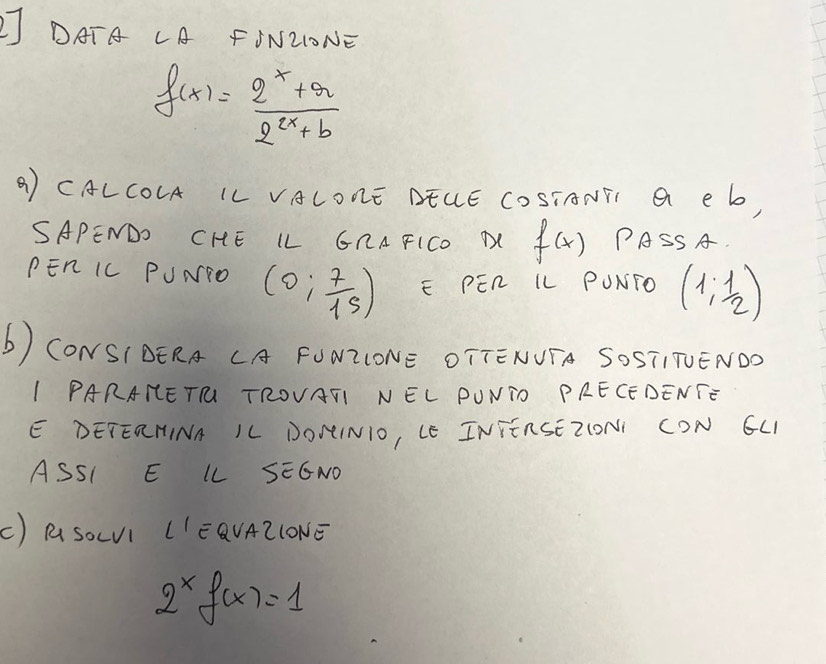 2] DATA LA FUNZIONE
f(x) = (2^x + a) / (2^{2x} + b)
a) CALCOLA IL VALORE DELLE COSTANTI a e b,
SAPENDO CHE IL GRAFICO DI f(x) PASSA
PER IL PUNTO (0; 7/15) E PER IL PUNTO (1; 1/2)
b) CONSIDERA LA FUNZIONE OTTENUTA SOSTITUENDO
I PARAMETRI TROVATI NEL PUNTO PRECEDENTE
E DETERMINA IL DOMINIO, LE INTERSEZIONI CON GLI
ASSI E IL SEGNO
c) RISOLVI L'EQUAZIONE
2^x f(x) = 1